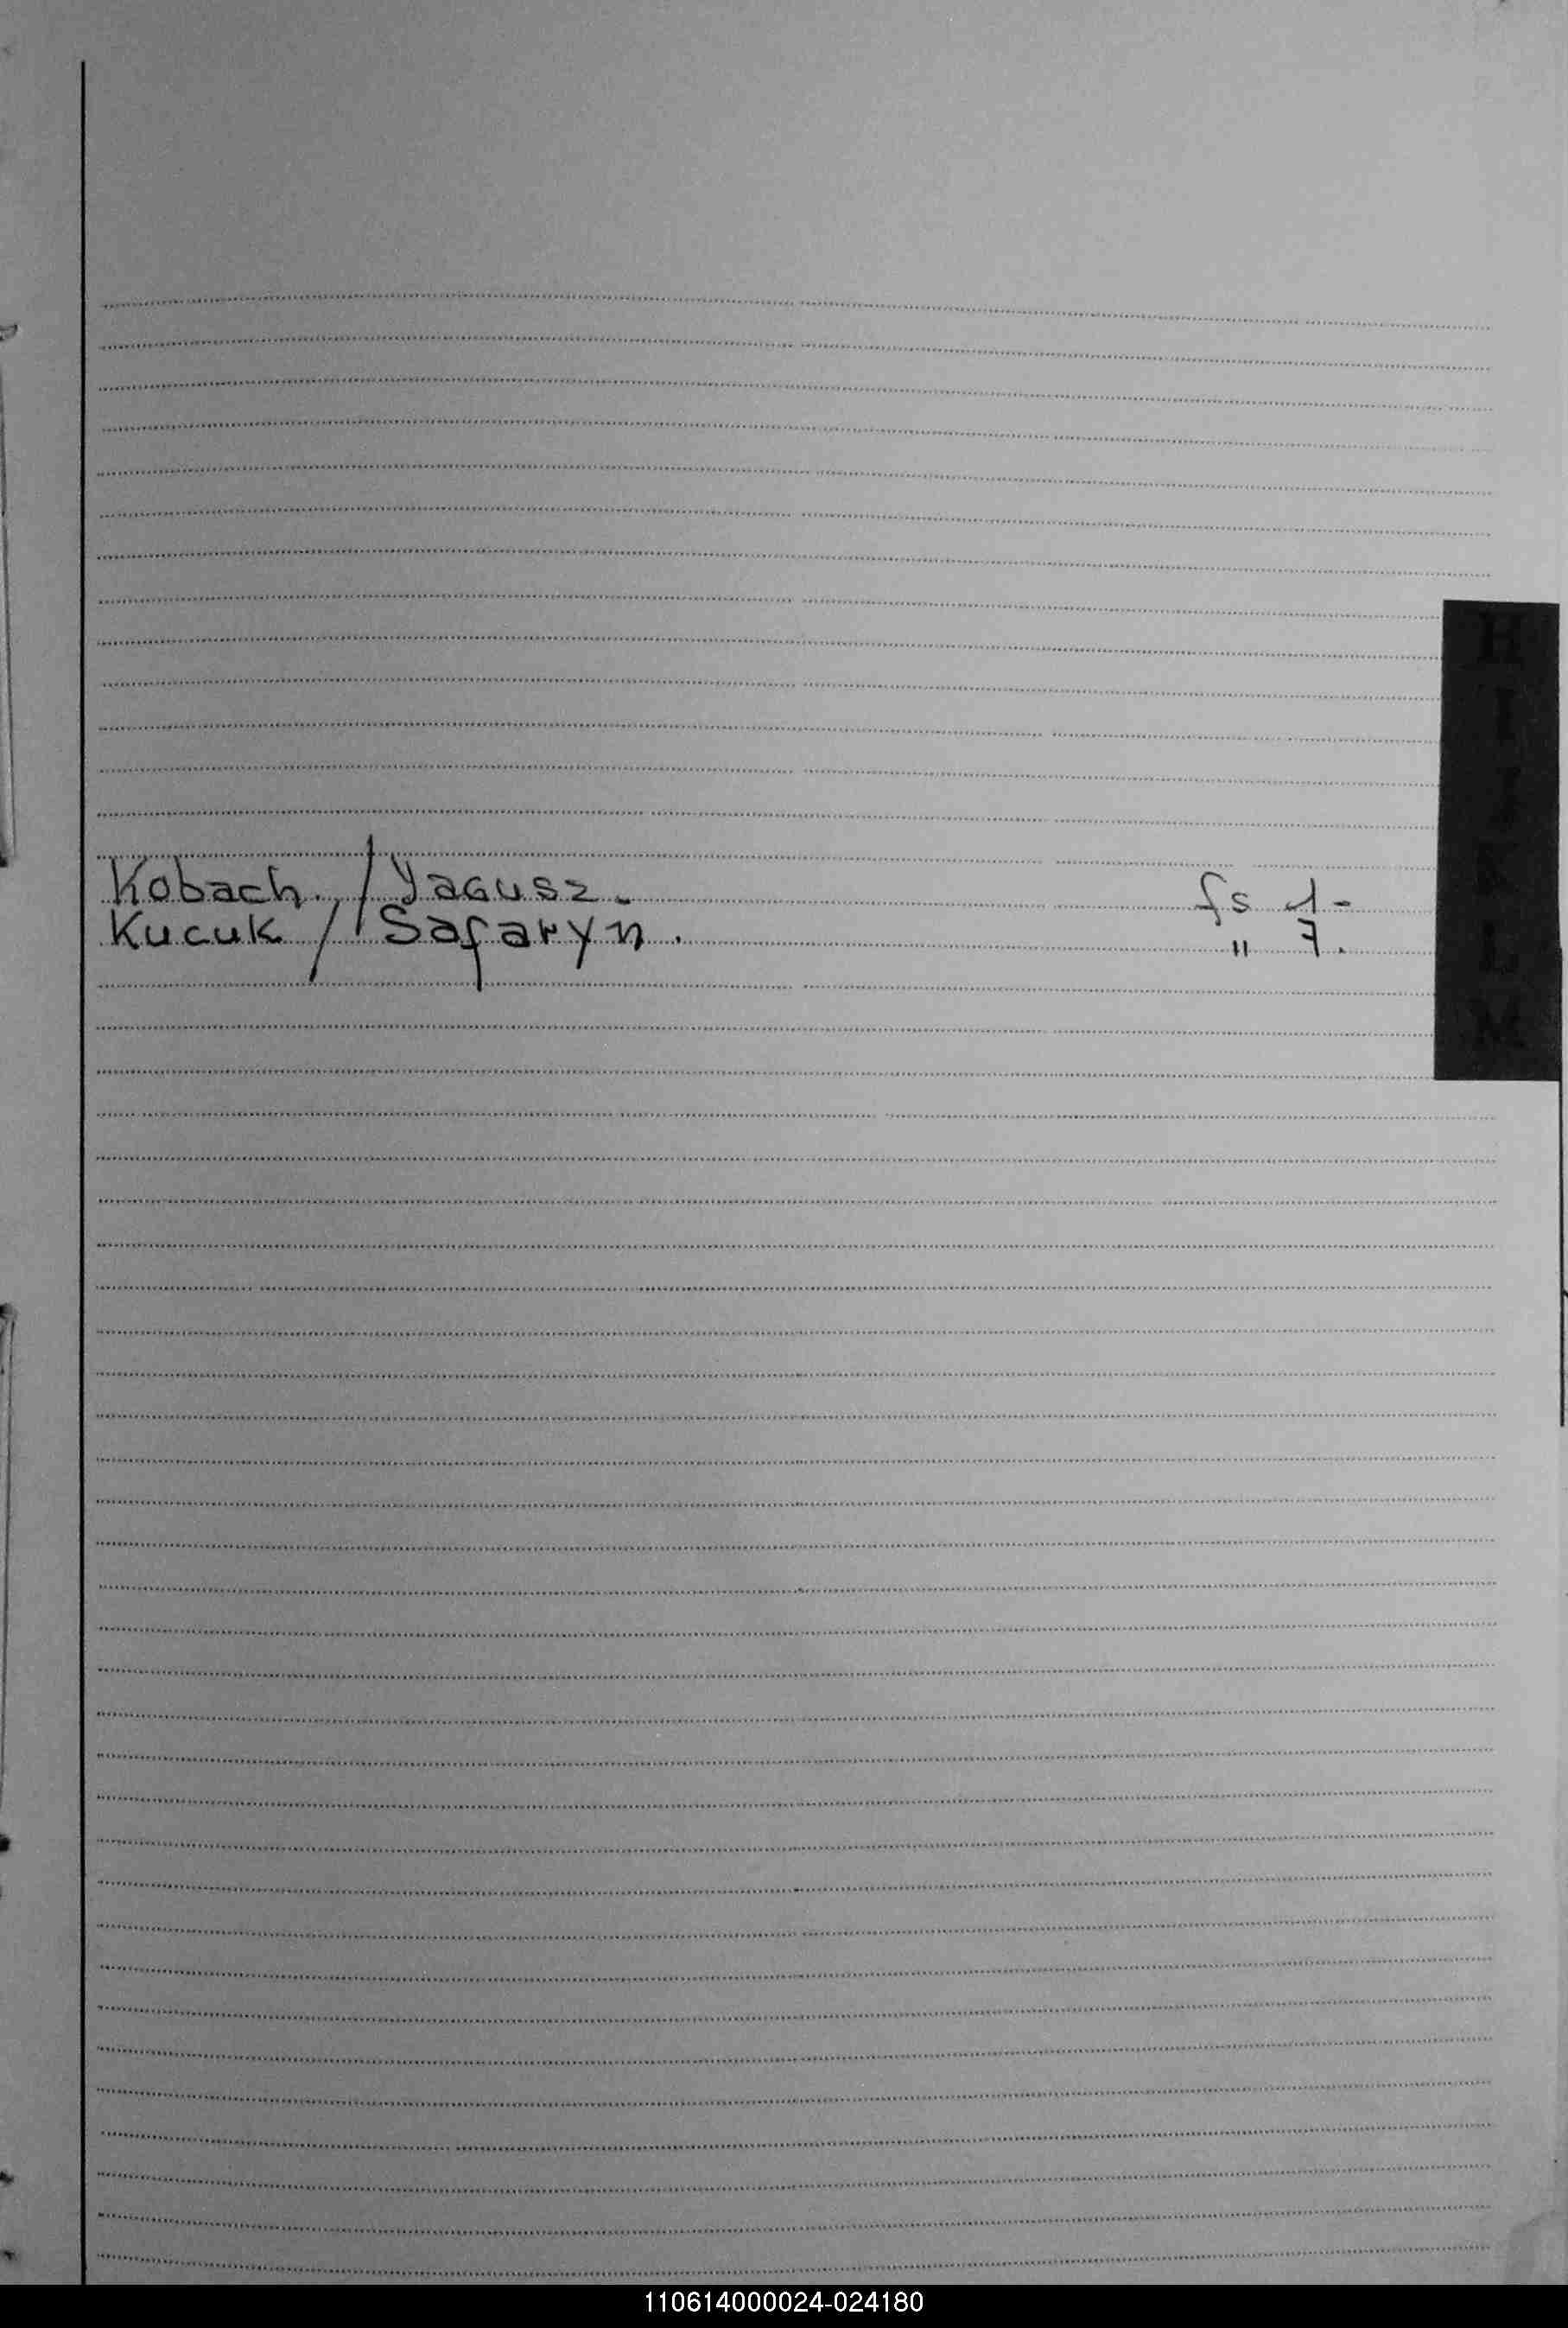 Kobach. / Yagusz. fs 1-
Kucuk / Safaryn. " 7.
H
I
J
K
L
M
110614000024-024180